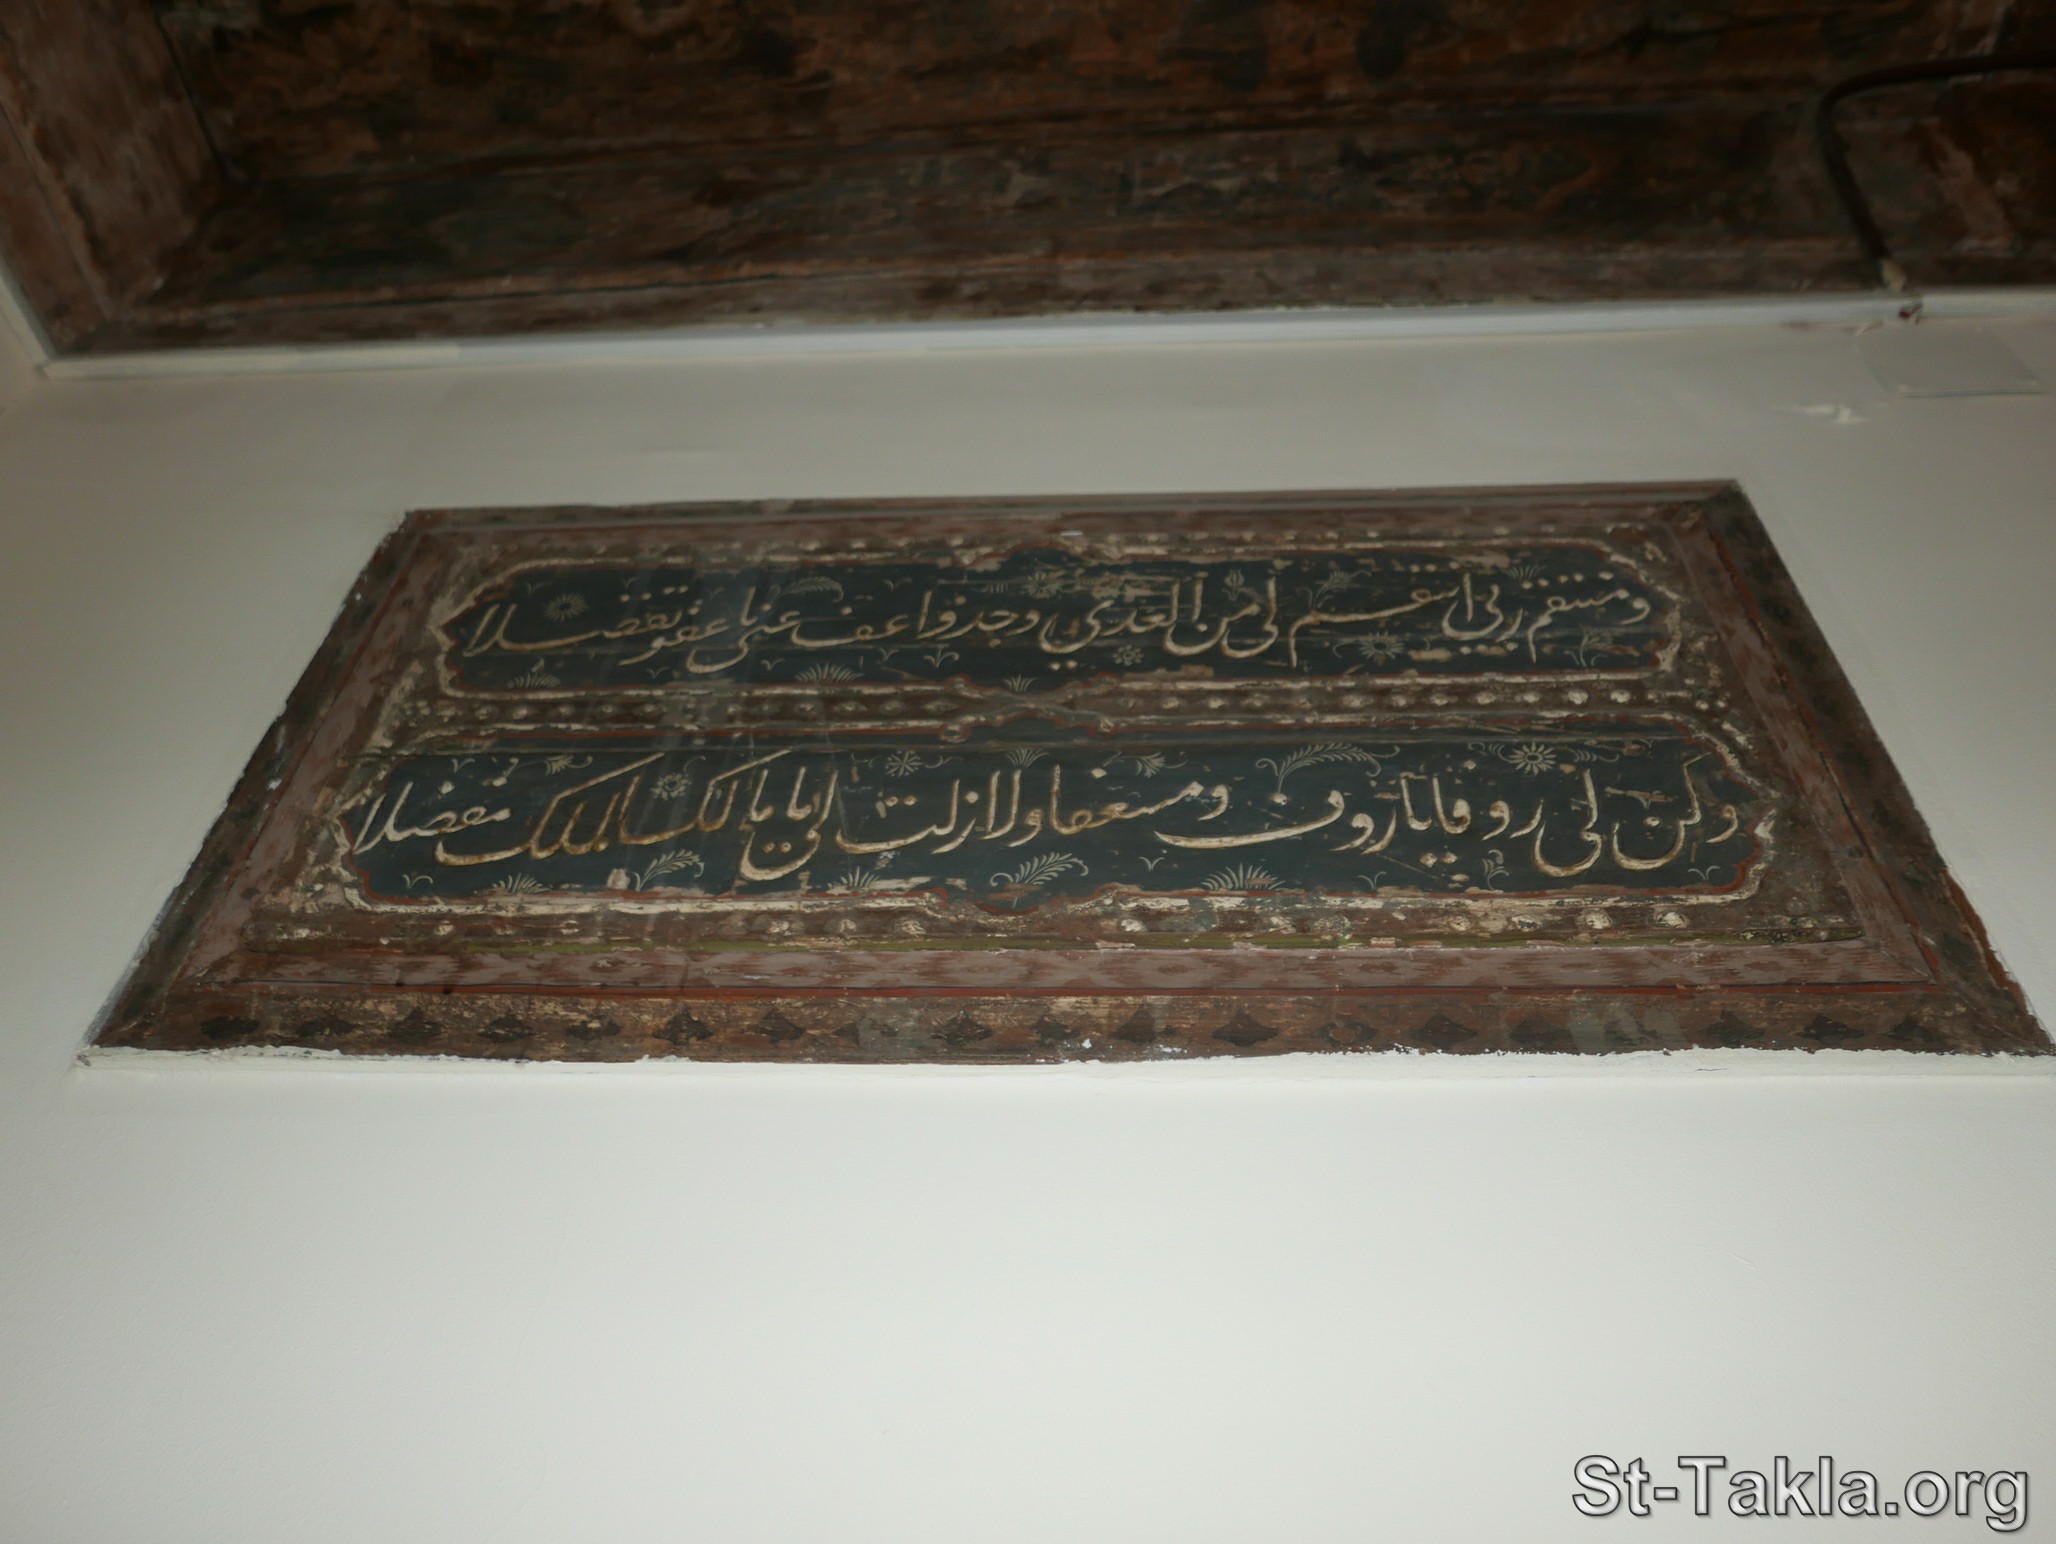 ومنتقم ربي انتقم لي من العدي وجد واعف عني يا عفو تفضلا
وكن لي روفا يا روف ومسعفا ولا زلت لي يا مالك الملك مفضلا
St-Takla.org